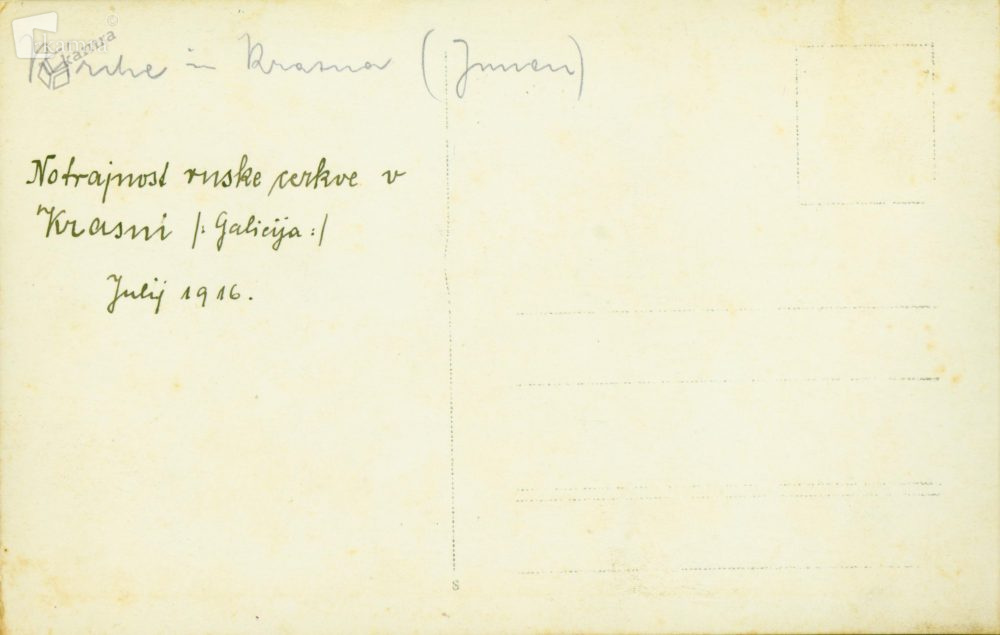 Kirche in Krasna (Innen)
Notrajnost ruske cerkve v
Krasni /: Galicija :/
Julij 1916.
8
kamra